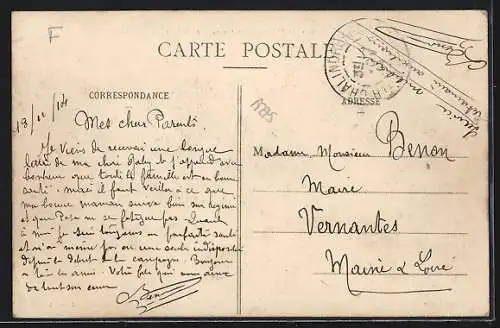 F
CARTE POSTALE
CORRESPONDANCE
ADRESSE
CHALINDREY
13/11/14
Mes chers Parents
Je viens de recevoir une longue
lettre de ma chère Gaby et j'apprend avec
bonheur que toute la famille est en bonne
santé - mais il faut veiller à ce que
ma bonne maman suive bien son régime
et que Papa ne se fatigue pas. Quant
à moi je suis toujours en parfaite santé
et n'ai même pas eu une seule indisposition
depuis le début de la campagne. Bonjour
à tous les amis. Votre fils qui vous aime
de tout son cœur
Benon
Madame, Monsieur Benon
Maire
Vernantes
Maine & Loire
Benon